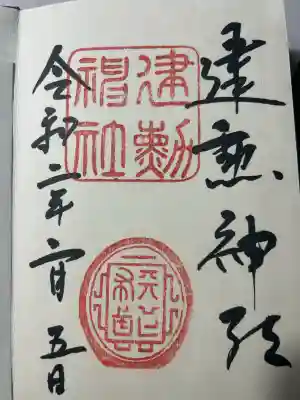 建勲神社
建勲
神社
令和二年六月五日